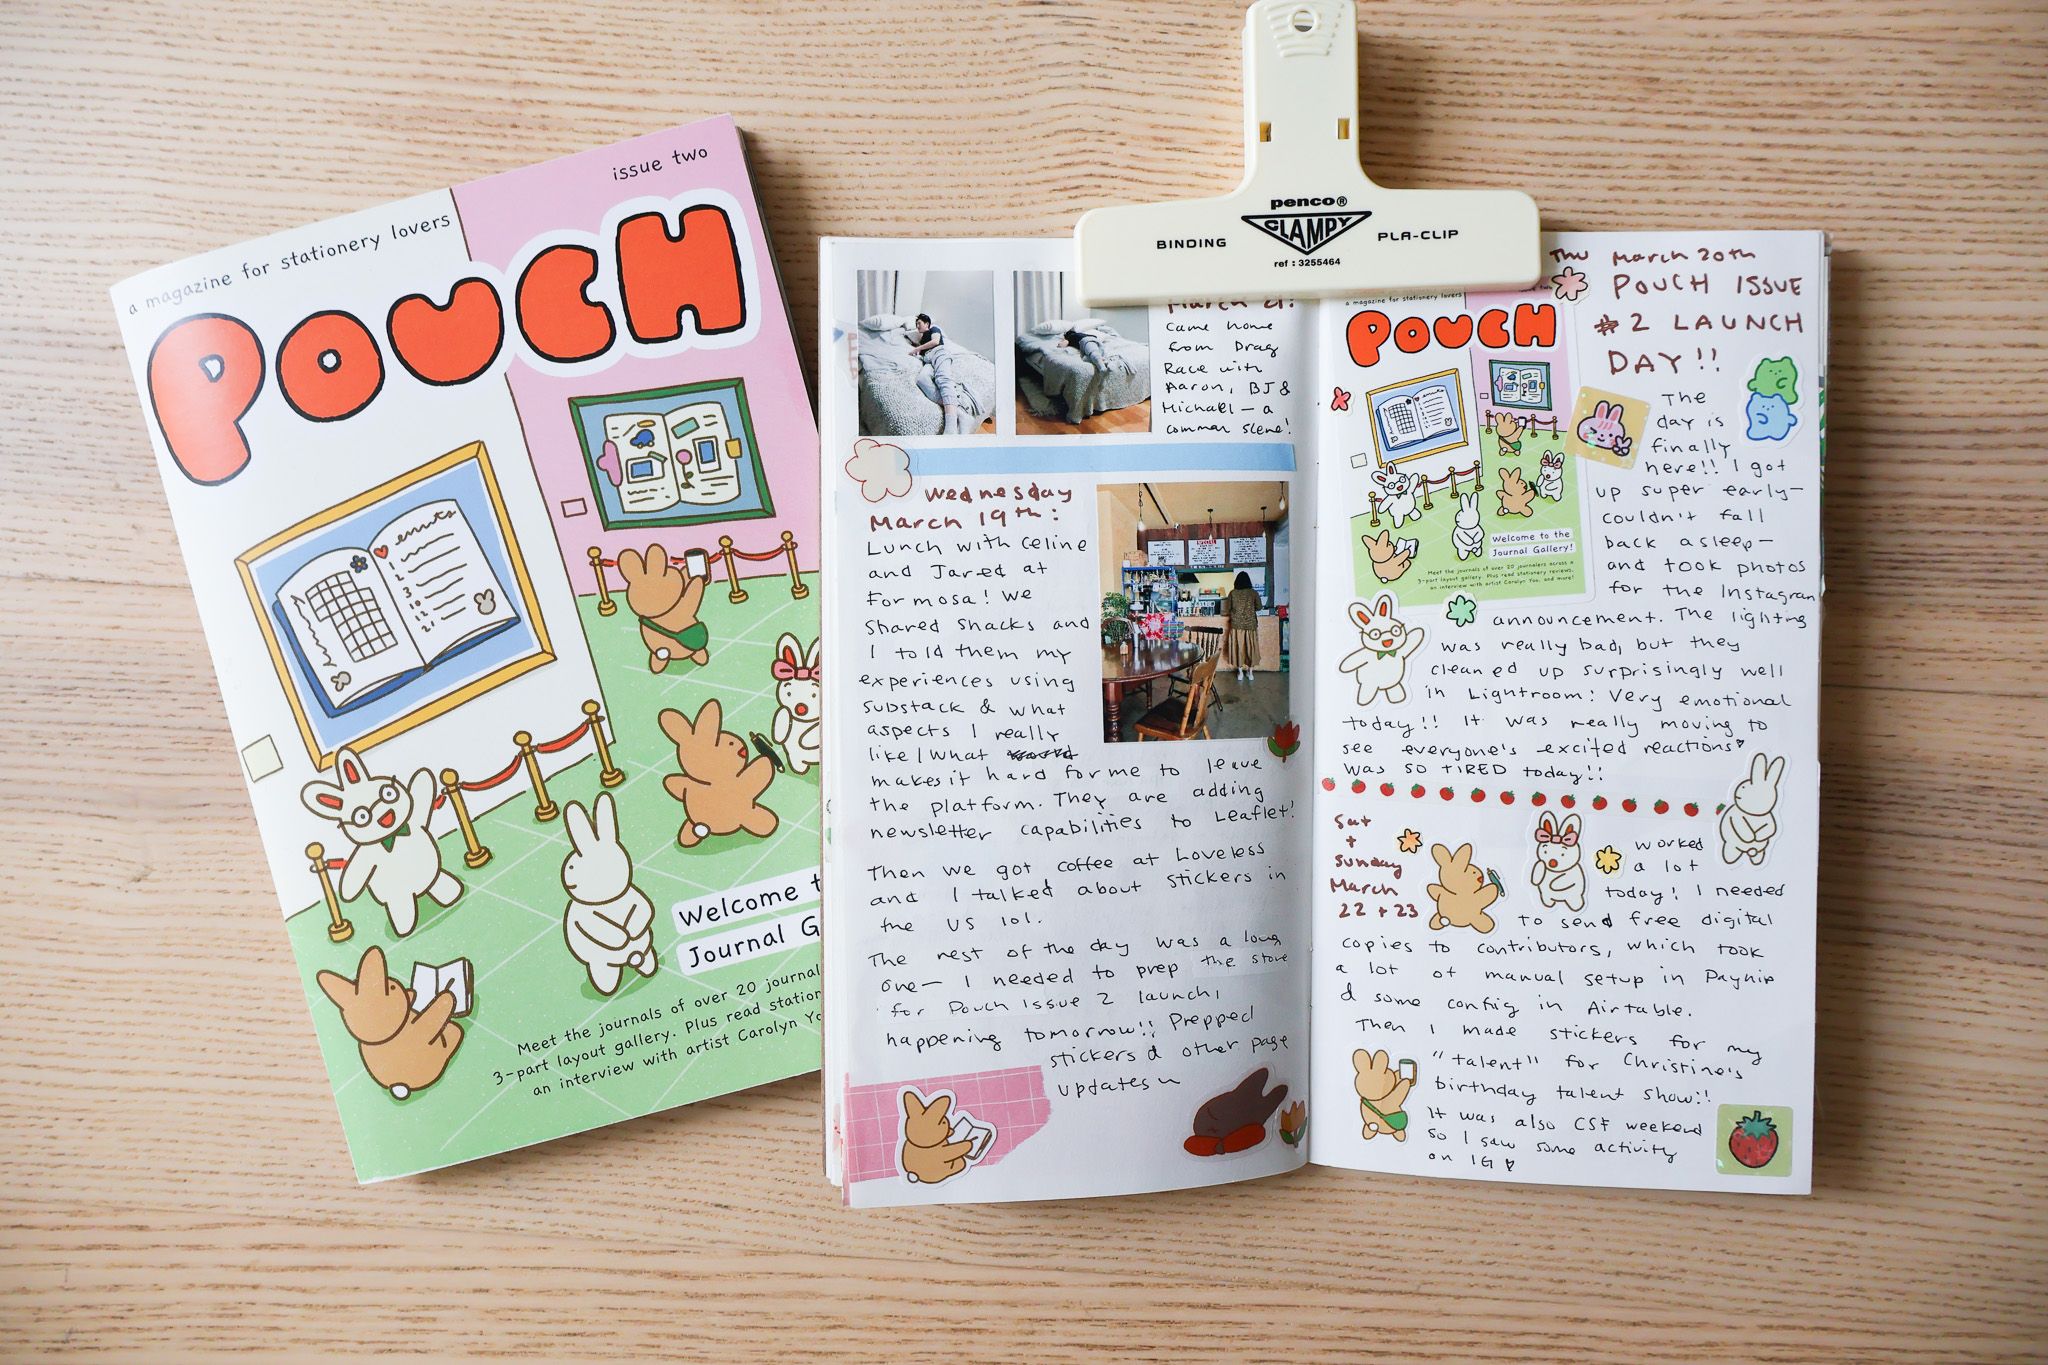 a magazine for stationery lovers
issue two
POUCH
events
Welcome t
Journal G
Meet the journals of over 20 journal
3-part layout gallery. Plus read station
an interview with artist Carolyn Yo
penco®
CLAMPY
BINDING
PLA-CLIP
ref : 3255464
March 21:
Came home
from Drag
Race with
Aaron, BJ &
Michael — a
common scene!
Wednesday
March 19th:
Lunch with Celine
and Jared at
Formosa! We
shared snacks and
I told them my
experiences using
substack & what
aspects I really
like/what
makes it hard for me to leave
the platform. They are adding
newsletter capabilities to Leaflet!
Then we got coffee at Loveless
and I talked about stickers in
the US lol.
The rest of the day was a long
one— I needed to prep the store
for Pouch Issue 2 launch,
happening tomorrow!! Prepped
stickers & other page
updates~
Thu March 20th
POUCH ISSUE
#2 LAUNCH
DAY!!
a magazine for stationery lovers
issue two
POUCH
Welcome to the
Journal Gallery!
Meet the journals of over 20 journalers across a
3-part layout gallery. Plus read stationery reviews,
an interview with artist Carolyn Yoo, and more!
The
day is
finally
here!! I got
up super early—
couldn't fall
back asleep—
and took photos
for the Instagram
announcement. The lighting
was really bad, but they
cleaned up surprisingly well
in Lightroom! Very emotional
today!! It was really moving to
see everyone's excited reactions♥
was SO TIRED today!!
Sat
+
Sunday
March
22 + 23
worked
a lot
today! I needed
to send free digital
copies to contributors, which took
a lot of manual setup in Payhip
& some config in Airtable.
Then I made stickers for my
"talent" for Christine's
birthday talent show!!
It was also CSF weekend
so I saw some activity
on IG ♥